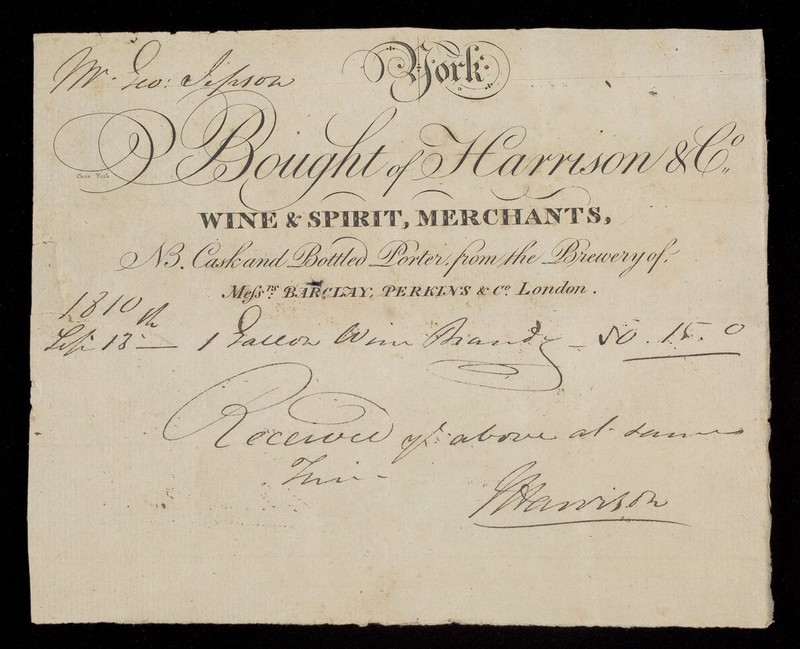 York
Mr. Geo: Jepson
Bought of Harrison & Co.
Cave York
WINE & SPIRIT, MERCHANTS,
NB. Cask and Bottled Porter, from the Brewery of,
Messrs. BARCLAY, PERKINS & Co. London.
1810
Sep 13th — 1 Gallon Wine Brandy — 50 . 15 . 0
Received ye above at same
Time
J Harrison